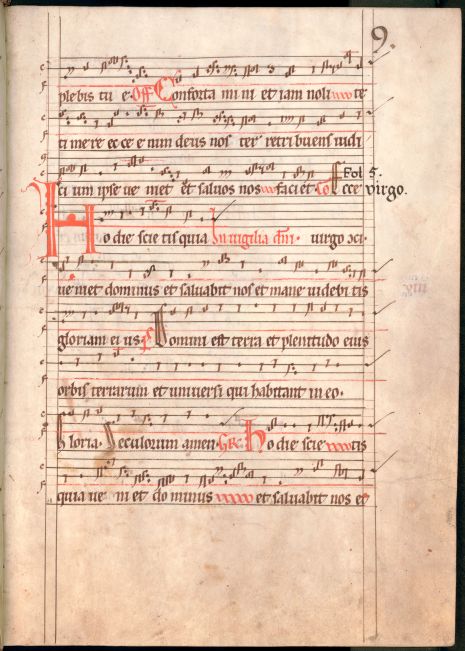 9.
plebis tu e. Off Conforta mi ni et iam noli te
ti me re ec ce e nim deus nos ter retri buens iudi
Fol 5.
ci um ipse ue niet et saluos nos faci et. Co Ecce virgo.
Ho die scie tis quia In uigilia dni. virgo ɔci.
ueniet dominus et saluabit nos et mane uidebi tis
gloriam ei us. ps Domini est terra et plenitudo eius
orbis terrarum et uniuersi qui habitant in eo.
Gloria. Seculorum amen. GR. Ho die scie tis
quia ue ni et do minus et saluabit nos et